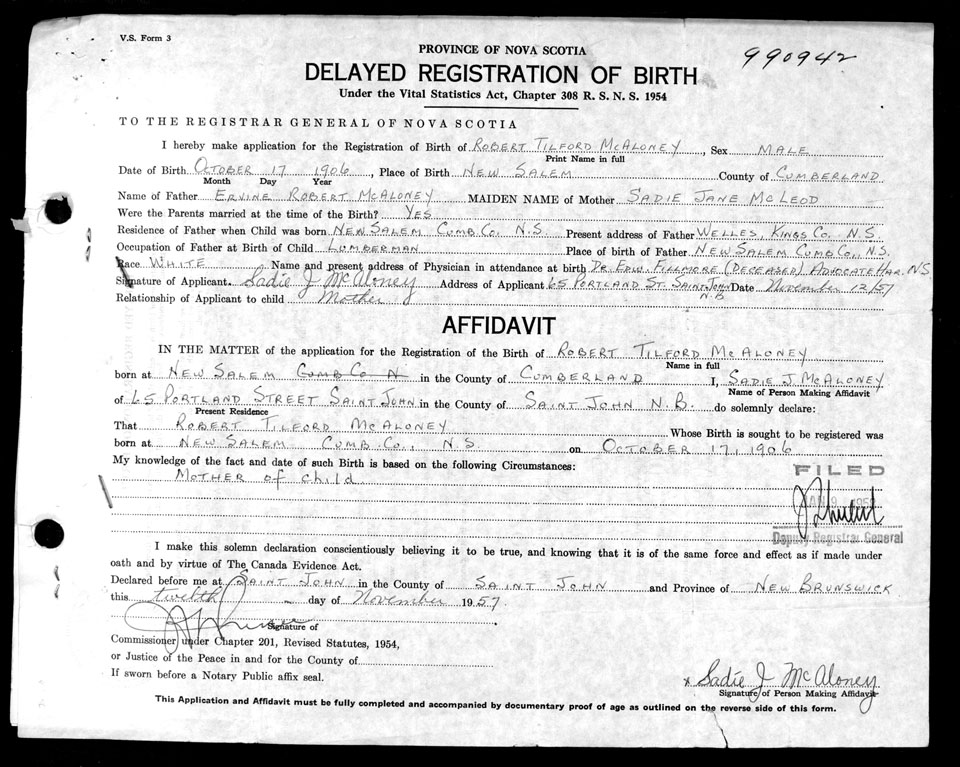 V.S. Form 3
990942
PROVINCE OF NOVA SCOTIA
DELAYED REGISTRATION OF BIRTH
Under the Vital Statistics Act, Chapter 308 R. S. N. S. 1954
TO THE REGISTRAR GENERAL OF NOVA SCOTIA
I hereby make application for the Registration of Birth of ROBERT TILFORD MCALONEY, Sex MALE
Print Name in full
Date of Birth OCTOBER 17 1906, Place of Birth NEW SALEM County of CUMBERLAND
Month Day Year
Name of Father ERVINE ROBERT MCALONEY MAIDEN NAME of Mother SADIE JANE MCLEOD
Were the Parents married at the time of the Birth? YES
Residence of Father when Child was born NEW SALEM CUMB. CO. N.S. Present address of Father WELLES, KINGS CO. N.S.
Occupation of Father at Birth of Child LUMBERMAN Place of birth of Father NEW SALEM CUMB CO., N.S.
Race WHITE Name and present address of Physician in attendance at birth DR. EDW. FILLMORE (DECEASED) ADVOCATE HAR. N.S
Signature of Applicant Sadie J McAloney Address of Applicant 65 PORTLAND ST. SAINT JOHN N.B Date November 12/57
Relationship of Applicant to child Mother
AFFIDAVIT
IN THE MATTER of the application for the Registration of the Birth of ROBERT TILFORD MCALONEY
Name in full
born at NEW SALEM CUMB CO N in the County of CUMBERLAND I, SADIE J. MCALONEY
Name of Person Making Affidavit
of 65 PORTLAND STREET SAINT JOHN in the County of SAINT JOHN N.B. do solemnly declare:
Present Residence
That ROBERT TILFORD MCALONEY Whose Birth is sought to be registered was
born at NEW SALEM CUMB. CO., N.S. on OCTOBER 17, 1906
My knowledge of the fact and date of such Birth is based on the following Circumstances:
MOTHER OF Child
FILED
Deputy Registrar General
I make this solemn declaration conscientiously believing it to be true, and knowing that it is of the same force and effect as if made under
oath and by virtue of The Canada Evidence Act.
Declared before me at SAINT JOHN in the County of SAINT JOHN and Province of NEW BRUNSWICK
this twelfth day of November 1957.
Signature of
Commissioner under Chapter 201, Revised Statutes, 1954,
or Justice of the Peace in and for the County of
If sworn before a Notary Public affix seal.
x Sadie J McAloney
Signature of Person Making Affidavit
This Application and Affidavit must be fully completed and accompanied by documentary proof of age as outlined on the reverse side of this form.